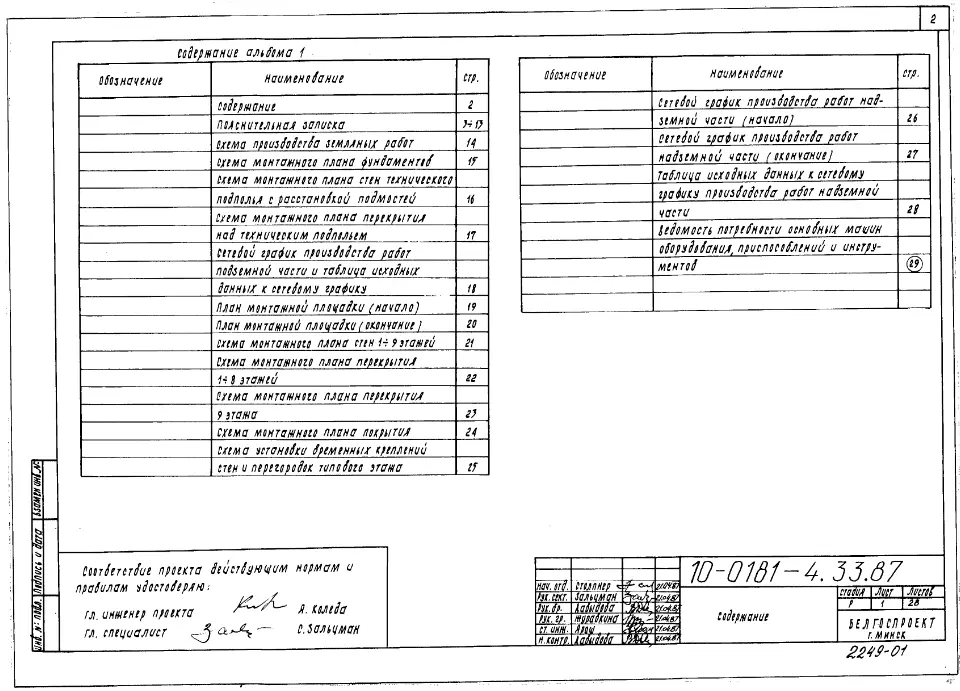 2
Содержание альбома 1
Обозначение Наименование стр.
Содержание 2
Пояснительная записка 3÷13
Схема производства земляных работ 14
Схема монтажного плана фундаментов 15
Схема монтажного плана стен технического
подполья с расстановкой подмостей 16
Схема монтажного плана перекрытия
над техническим подпольем 17
Сетевой график производства работ
подземной части и таблица исходных
данных к сетевому графику 18
План монтажной площадки (начало) 19
План монтажной площадки (окончание) 20
Схема монтажного плана стен 1÷9 этажей 21
Схема монтажного плана перекрытия
1÷8 этажей 22
Схема монтажного плана перекрытия
9 этажа 23
Схема монтажного плана покрытия 24
Схема установки временных креплений
стен и перегородок типового этажа 25
Обозначение Наименование стр.
Сетевой график производства работ над-
земной части (начало) 26
Сетевой график производства работ
надземной части (окончание) 27
Таблица исходных данных к сетевому
графику производства работ надземной
части 28
Ведомость потребности основных машин
оборудования, приспособлений и инстру-
ментов 29
Взамен инв.№
Подпись и дата
Инв.№ подл.
Соответствие проекта действующим нормам и
правилам удостоверяю:
гл. инженер проекта А. Коледа
гл. специалист С. Зальцман
10-0181-4.33.87
Нач. отд. 21.04.87
Рук. сект. Зальцман 21.04.87
Рук. бр. Давыдова 21.04.87
Рук. гр. Журавкина 21.04.87
Ст. инж. Ярош 21.04.87
Н. контр. Давыдова 21.04.87
Содержание
Стадия Лист Листов
Р 1 28
БЕЛГОСПРОЕКТ
г. Минск
2249-01